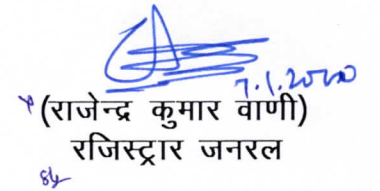 7.1.2020
(राजेन्द्र कुमार वाणी)
रजिस्ट्रार जनरल